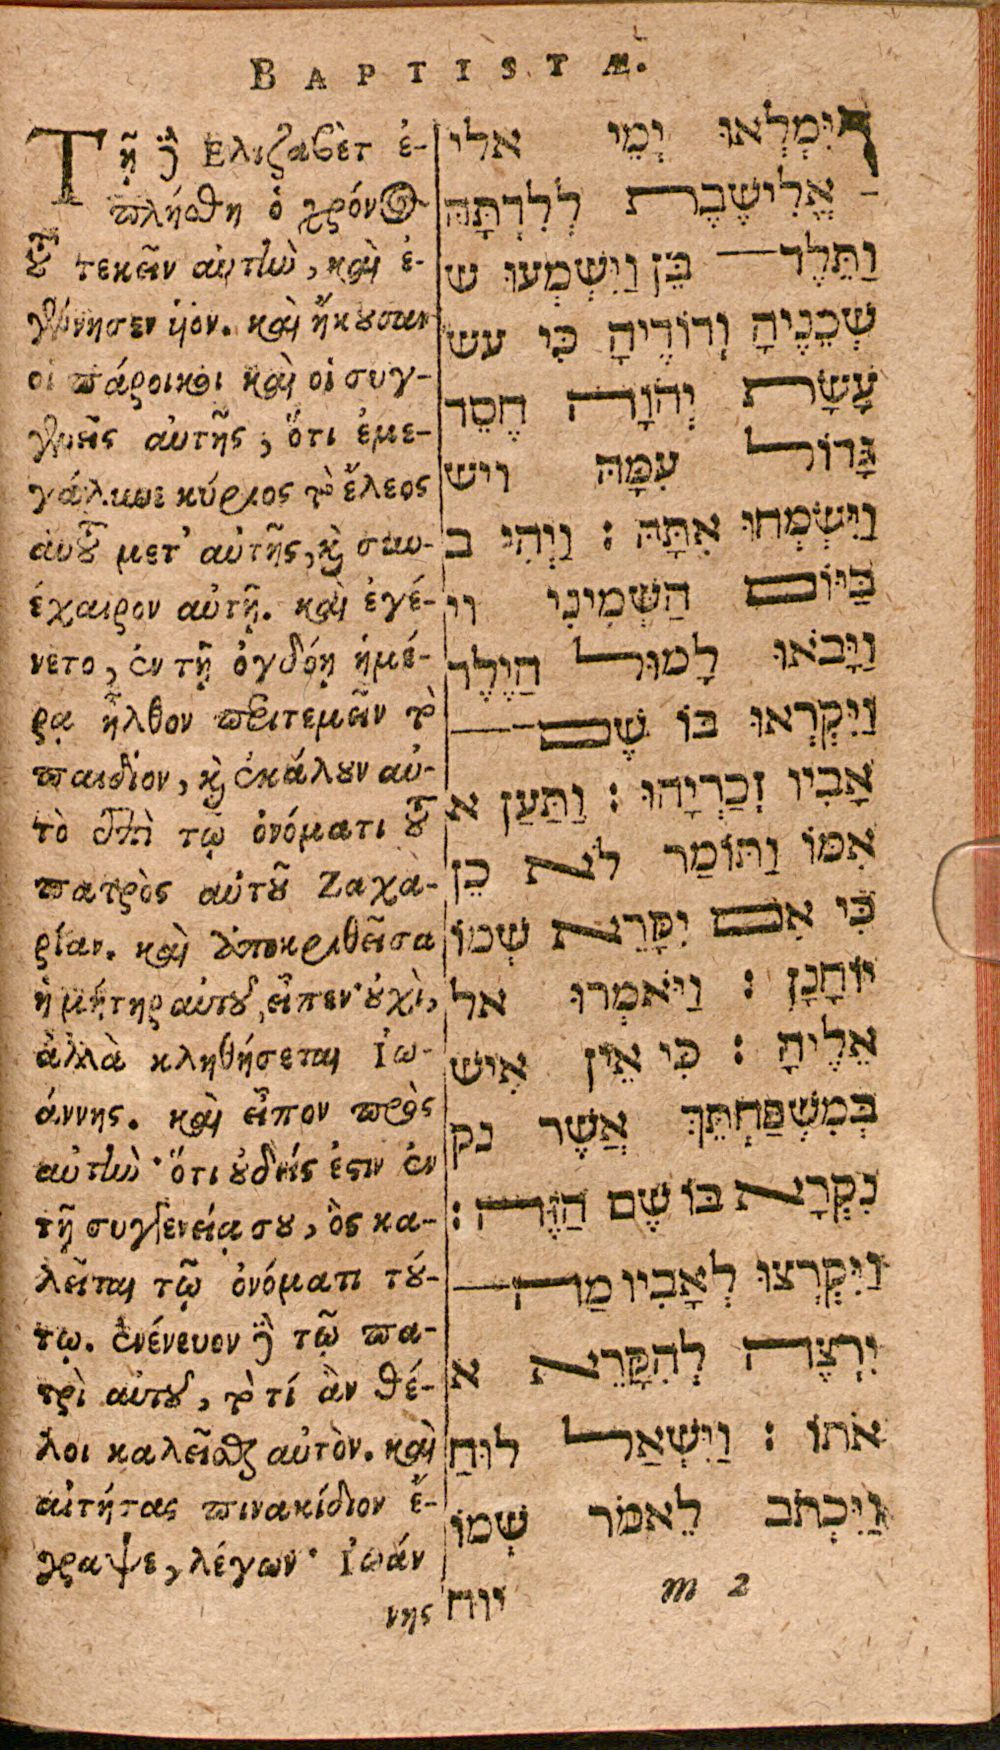 BAPTISTÆ.
Τῇ δὲ Ελιζαβὲτ ἐ-
πλήσθη ὁ χρόνος
τοῦ τεκεῖν αὐτὴν, καὶ ἐ-
γέννησεν ὑιόν. καὶ ἤκουσαν
οἱ πάροικοι καὶ οἱ συγ-
γενεῖς αὐτῆς, ὅτι ἐμε-
γάλυνε κύριος τὸ ἔλεος
αὐτοῦ μετ' αὐτῆς, καὶ συν-
έχαιρον αὐτῇ. καὶ ἐγέ-
νετο, ἐν τῇ ὀγδόῃ ἡμέ-
ρᾳ ἦλθον περιτεμεῖν τὸ
παιδίον, καὶ ἐκάλουν αὐ-
τὸ ἐπὶ τῷ ὀνόματι τοῦ
πατρὸς αὐτοῦ Ζαχα-
ρίαν. καὶ ἀποκριθεῖσα
ἡ μήτηρ αὐτοῦ, εἶπεν· οὐχὶ,
ἀλλὰ κληθήσεται Ιω-
άννης. καὶ εἶπον πρὸς
αὐτὴν· ὅτι οὐδείς ἐστιν ἐν
τῇ συγγενείᾳ σου, ὃς κα-
λεῖται τῷ ὀνόματι τού-
τῳ. ἐνένευον δὲ τῷ πα-
τρὶ αὐτοῦ, τὸ τί ἂν θέ-
λοι καλεῖσθαι αὐτὸν. καὶ
αἰτήσας πινακίδιον ἔ-
γραψε, λέγων· Ιωάν
νης
וַיִּמְלְאוּ יְמֵי אלי
אֱלִישֶׁבֶת לְלִדְתָּהּ
וַתֵּלֶד בֵּן וַיִּשְׁמְעוּ ש
שְׁכֵנֶיהָ וְדוֹדֶיהָ כִּי עש
עָשָׂת יְהוָה חֶסֵד
גָּדוֹל עִמָּהּ ויש
וַיִּשְׂמְחוּ אִתָּהּ : וַיְהִי ב
בַּיּוֹם הַשְּׁמִינִי וי
וַיָּבֹאוּ לָמוּל הַיֶּלֶד
וַיִּקְרְאוּ בּוֹ שֶׁם
אָבִיו זְכַרְיָהוּ : וַתַּעַן א
אִמּוֹ וַתּוֹמַר לֹא כֵן
כִּי אִם יִקָּרֵא שְׁמוֹ
יוֹחָנָן : וַיֹּאמְרוּ אל
אֵלֶיהָ : כִּי אֵין אִישׁ
בְּמִשְׁפַּחְתֵּךְ אֲשֶׁר נק
נִקְרָא בּוֹ שֶׁם הַזֶּה :
וַיִּקְרְצוּ לְאָבִיו מַה
יִרְצֶה לְהִקָּרֵא א
אֹתוֹ : וַיִּשְׁאַל לוּחַ
וַיִּכְתֹּב לֵאמֹר שְׁמוֹ
יוח
m 2